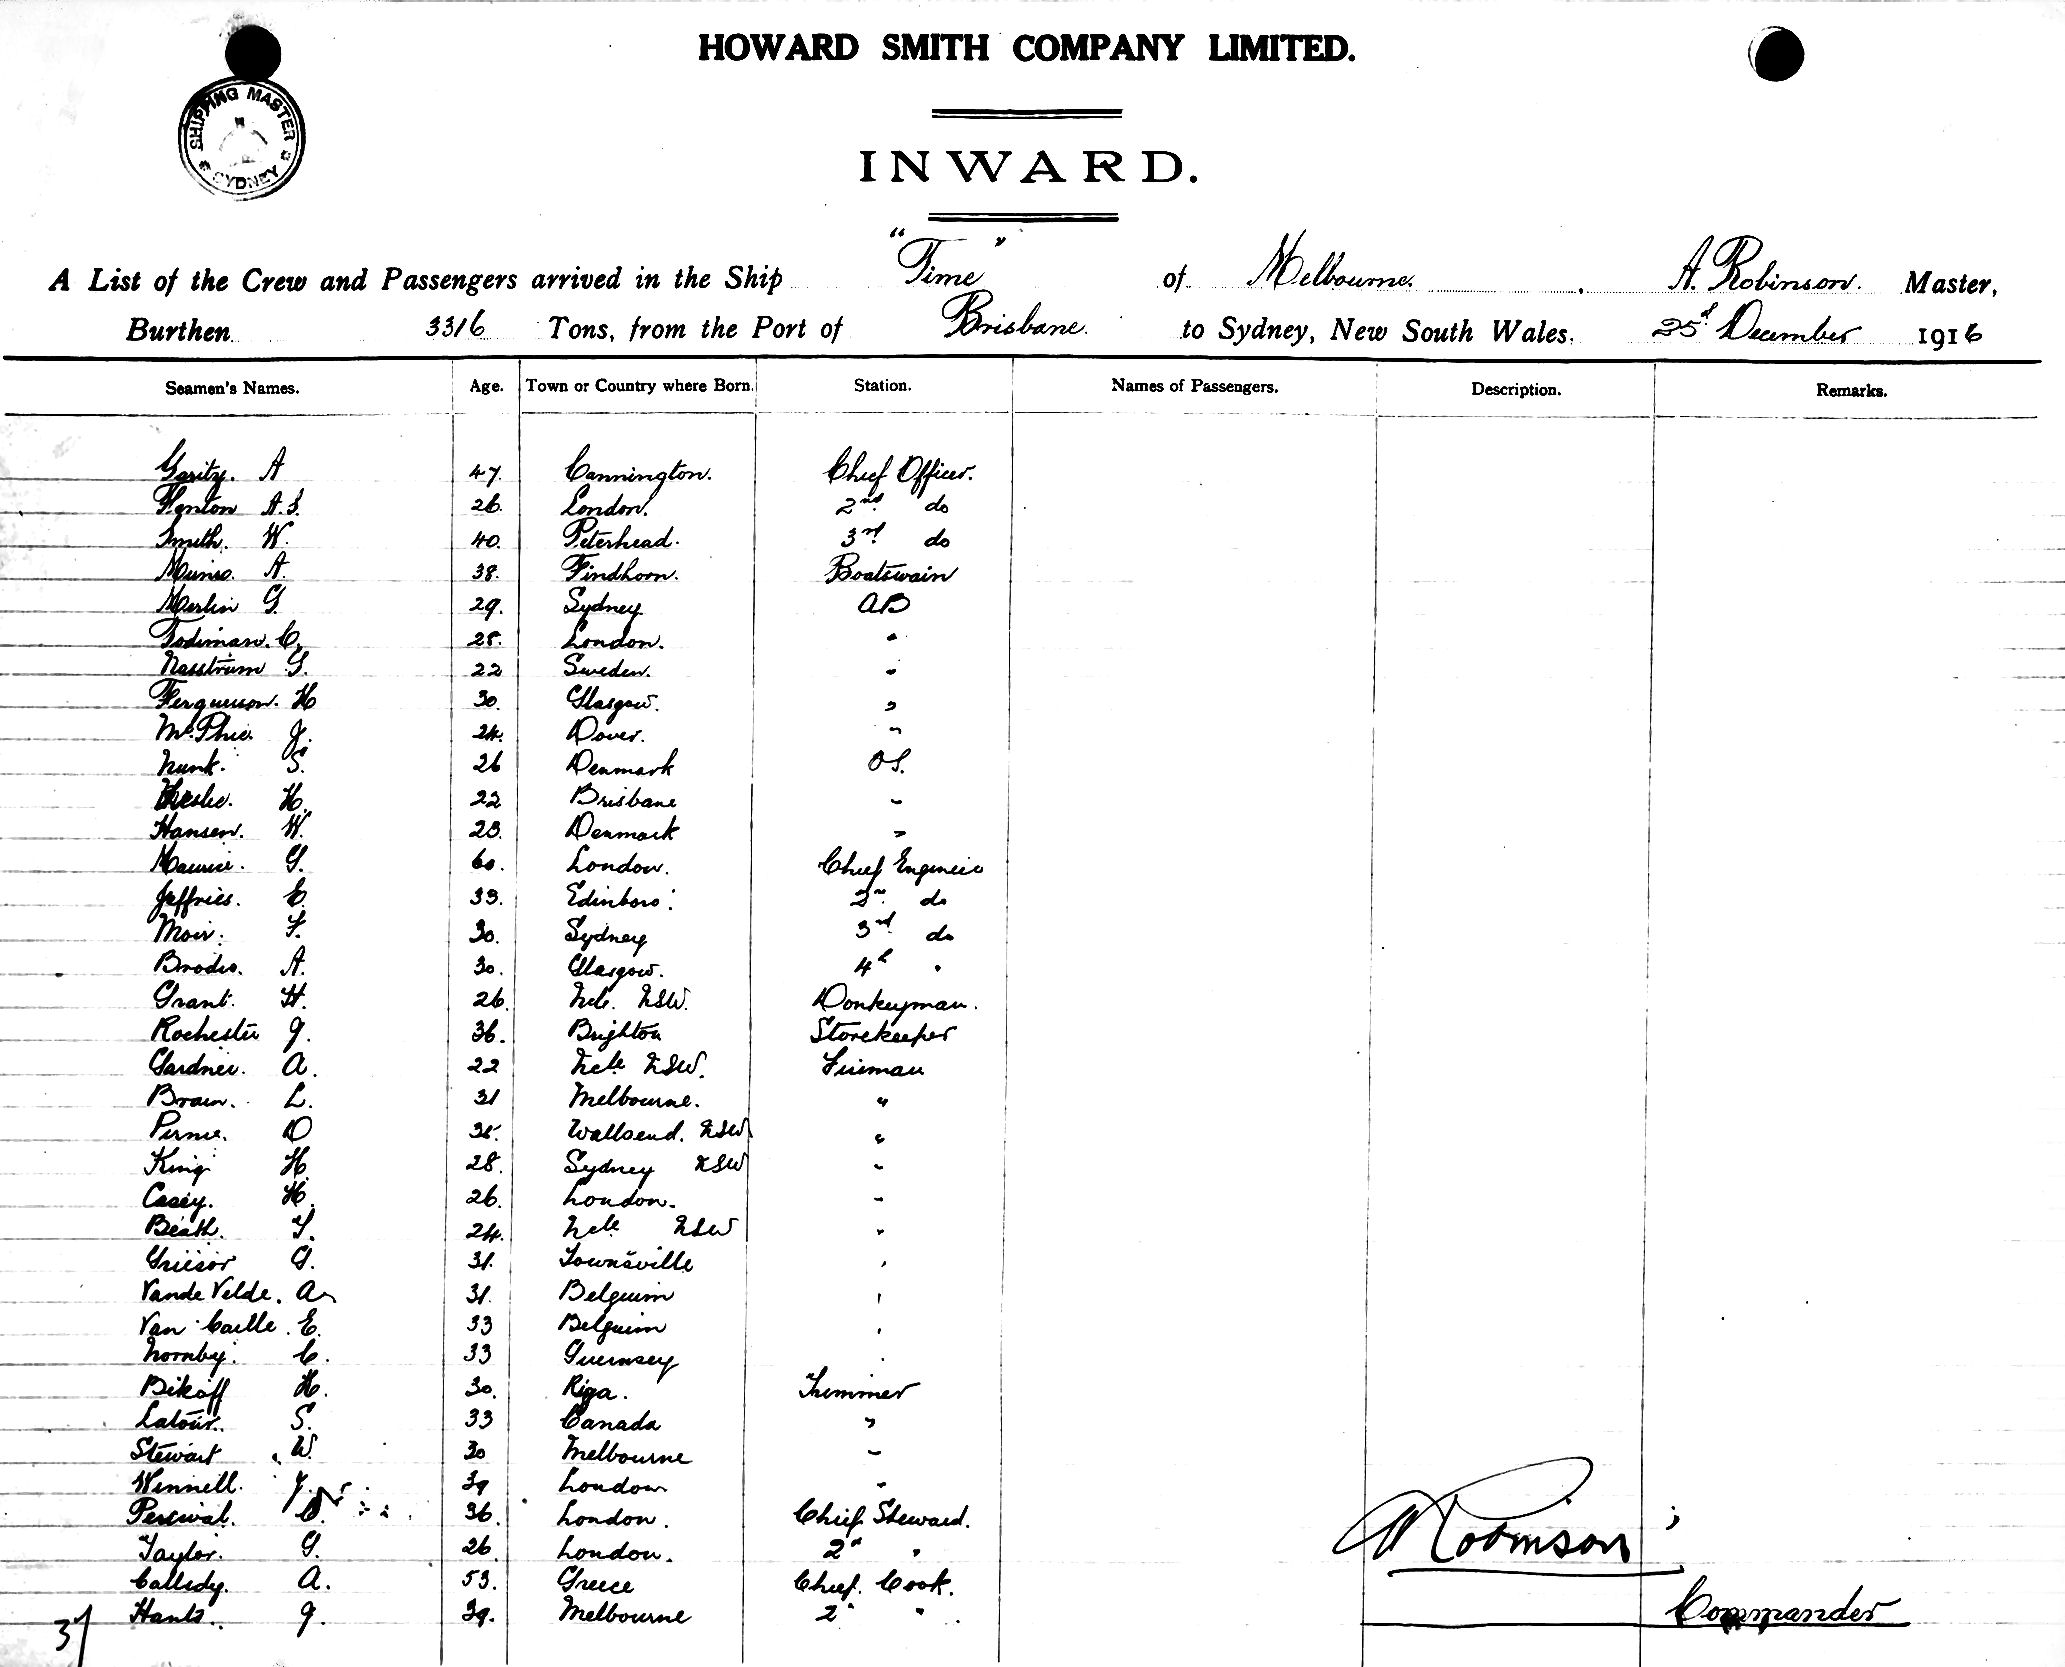 HOWARD SMITH COMPANY LIMITED.
SHIPPING MASTER SYDNEY
INWARD.
A List of the Crew and Passengers arrived in the Ship "Time" of Melbourne. A. Robinson. Master,
Burthen 3316 Tons, from the Port of Brisbane. to Sydney, New South Wales. 25th December 1916
Seamen's Names. Age. Town or Country where Born. Station. Names of Passengers. Description. Remarks.
Garity. A 47. Cannington. Chief Officer.
Fenton A.S. 26. London. 2nd do
Smith. W. 40. Peterhead. 3rd do
Munro. A. 38. Findhorn. Boatswain
Merlin G. 29. Sydney AB
Todiman. C. 28. London. "
Nasström G. 22 Sweden. "
Ferguson. H 30. Glasgow. "
McPhie J. 24. Dover. "
Nunk. S. 26 Denmark OS.
Leslie. H. 22 Brisbane "
Hansen. W. 23. Denmark "
Maurice. G. 60. London. Chief Engineer
Jeffries. C. 33. Edinboro. 2nd do
Moir. F. 30. Sydney 3rd do
Brodie. A. 30. Glasgow. 4th "
Grant. H. 26. Ncle. NSW. Donkeyman.
Rochester J. 36. Brighton Storekeeper
Gardner. A. 22 Ncle NSW. Fireman
Brain. L. 31 Melbourne. "
Pirnie. D 35. Wallsend. NSW "
King H 28. Sydney NSW "
Casey. H. 26. London. "
Beath. T. 24. Ncle NSW "
Griesor G. 31. Townsville "
Vande Velde. A 31. Belguim "
Van Caille. E. 33 Belguim "
Hornby. C. 33 Guernsey
Bikoff H. 30. Riga. Trimmer
Latour. S. 33 Canada "
Stewart W. 30 Melbourne "
Wennell. J. 39 London "
Percival. C. 36. London. Chief Steward.
Taylor. G. 26. London. 2nd "
Callidy. A. 53. Greece Chief. Cook.
Hants. J. 39. Melbourne 2 "
A Robinson
Commander
37